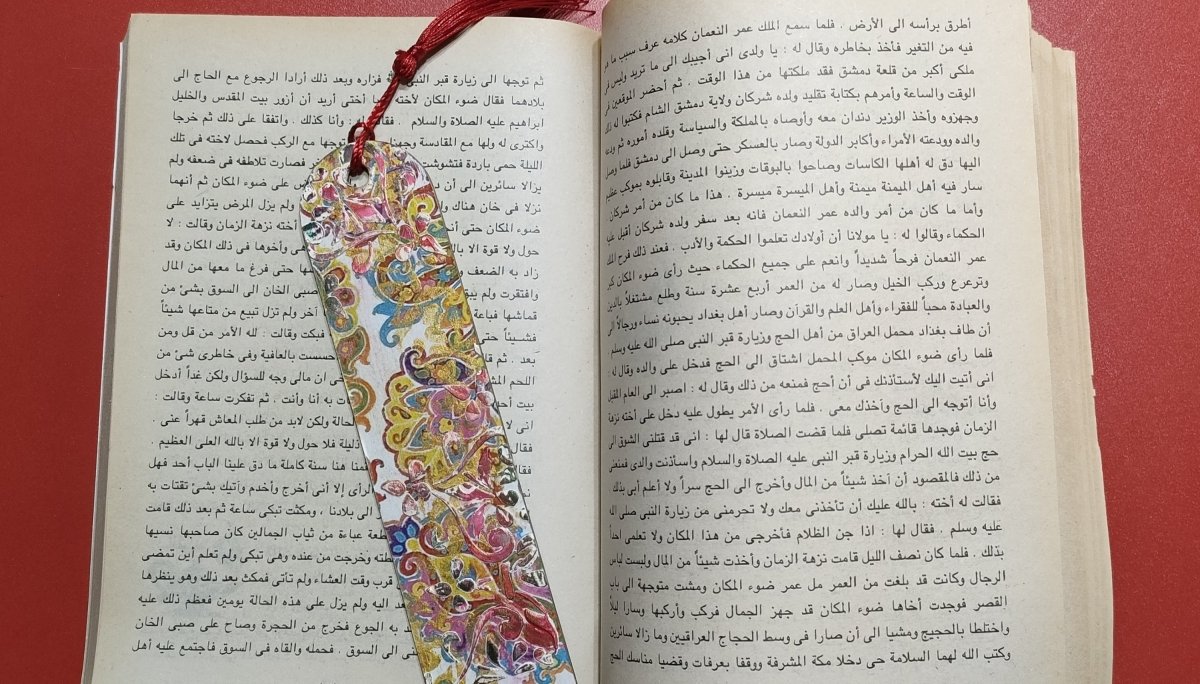 أطرق برأسه الى الأرض . فلما سمع الملك عمر النعمان كلامه عرف سبب ما
فيه من التغير فأخذ بخاطره وقال له : يا ولدى انى أجيبك الى ما تريد وليس فى
ملكى أكبر من قلعة دمشق فقد ملكتها من هذا الوقت . ثم أحضر الموقعين فى
الوقت والساعة وأمرهم بكتابة تقليد ولده شركان ولاية دمشق الشام فكتبوا له ذلك
وجهزوه وأخذ الوزير دندان معه وأوصاه بالمملكة والسياسة وقلده أموره ثم ودعه
والده وودعته الأمراء وأكابر الدولة وصار بالعسكر حتى وصل الى دمشق فلما وصل
اليها دق له أهلها الكاسات وصاحوا بالبوقات وزينوا المدينة وقابلوه بموكب عظيم
سار فيه أهل الميمنة ميمنة وأهل الميسرة ميسرة . هذا ما كان من أمر شركان
وأما ما كان من أمر والده عمر النعمان فانه بعد سفر ولده شركان أقبل عليه
الحكماء وقالوا له : يا مولانا أن أولادك تعلموا الحكمة والأدب . فعند ذلك فرح الملك
عمر النعمان فرحاً شديداً وانعم على جميع الحكماء حيث رأى ضوء المكان كبر
وترعرع وركب الخيل وصار له من العمر أربع عشرة سنة وطلع مشتغلاً بالدين
والعبادة محباً للفقراء وأهل العلم والقرآن وصار أهل بغداد يحبونه نساء ورجالاً الى
أن طاف بغداد محمل العراق من أهل الحج وزيارة قبر النبى صلى الله عليه وسلم
فلما رأى ضوء المكان موكب المحمل اشتاق الى الحج فدخل على والده وقال له :
انى أتيت اليك لأستأذنك فى أن أحج فمنعه من ذلك وقال له : اصبر الى العام المقبل
وأنا أتوجه الى الحج وآخذك معى . فلما رأى الأمر يطول عليه دخل على أخته نزهة
الزمان فوجدها قائمة تصلى فلما قضت الصلاة قال لها : انى قد قتلنى الشوق الى
حج بيت الله الحرام وزيارة قبر النبى عليه الصلاة والسلام واسأذنت والدى فمنعنى
من ذلك فالمقصود أن آخذ شيئاً من المال وأخرج الى الحج سراً ولا أعلم أبى بذلك
فقالت له أخته : بالله عليك أن تأخذنى معك ولا تحرمنى من زيارة النبى صلى الله
عليه وسلم . فقال لها : اذا جن الظلام فأخرجى من هذا المكان ولا تعلمى أحداً
بذلك . فلما كان نصف الليل قامت نزهة الزمان وأخذت شيئاً من المال ولبست لباس
الرجال وكانت قد بلغت من العمر مل عمر ضوء المكان ومشت متوجهة الى باب
القصر فوجدت أخاها ضوء المكان قد جهز الجمال فركب وأركبها وسارا ليلاً
واختلطا بالحجيج ومشيا الى أن صارا فى وسط الحجاج العراقيين وما زالا سائرين
وكتب الله لهما السلامة حى دخلا مكة المشرفة ووقفا بعرفات وقضيا مناسك الحج
ثم توجها الى زيارة قبر النبى فزاره وبعد ذلك أرادا الرجوع مع الحاج الى
بلادهما فقال ضوء المكان لأخته أختى أريد أن أزور بيت المقدس والخليل
ابراهيم عليه الصلاة والسلام . فقالت له : وأنا كذلك . واتفقا على ذلك ثم خرجا
واكترى له ولها مع المقادسة وجهزا توجها مع الركب فحصل لاخته فى تلك
الليلة حمى باردة فتشوشت فصارت تلاطفه فى ضعفه ولم
يزالا سائرين الى أن على ضوء المكان ثم أنهما
نزلا فى خان هناك ولم يزل المرض يتزايد على
ضوء المكان حتى أخته نزهة الزمان وقالت : لا
حول ولا قوة الا بالله وأخوها فى ذلك المكان وقد
زاد به الضعف حتى فرغ ما معها من المال
وافتقرت ولم صبى الخان الى السوق بشئ من
قماشها فباعه آخر ولم تزل تبيع من متاعها شيئاً
فشيئاً حتى فبكت وقالت : لله الأمر من قل ومن
بعد . ثم حسست بالعافية وفى خاطرى شئ من
اللحم ان مالى وجه للسؤال ولكن غداً أدخل
بيت به أنا وأنت . ثم تفكرت ساعة وقالت :
انى لا الحالة ولكن لابد من طلب المعاش قهراً عنى .
ذليلة فلا حول ولا قوة الا بالله العلى العظيم .
هنا سنة كاملة ما دق علينا الباب أحد فهل
إلا أنى أخرج وأخدم وآتيك بشئ تقتات به
الى بلادنا . ومكثت تبكى ساعة ثم بعد ذلك قامت
قطعة عباءة من ثياب الجمالين كان صاحبها نسيها
وخرجت من عنده وهى تبكى ولم تعلم أين تمضى
قرب وقت العشاء ولم تأتى فمكث بعد ذلك وهو ينظرها
اليه ولم يزل على هذه الحالة يومين فعظم ذلك عليه
به الجوع فخرج من الحجرة وصاح على صبى الخان
الى السوق . فحمله والقاه فى السوق فاجتمع عليه أهل